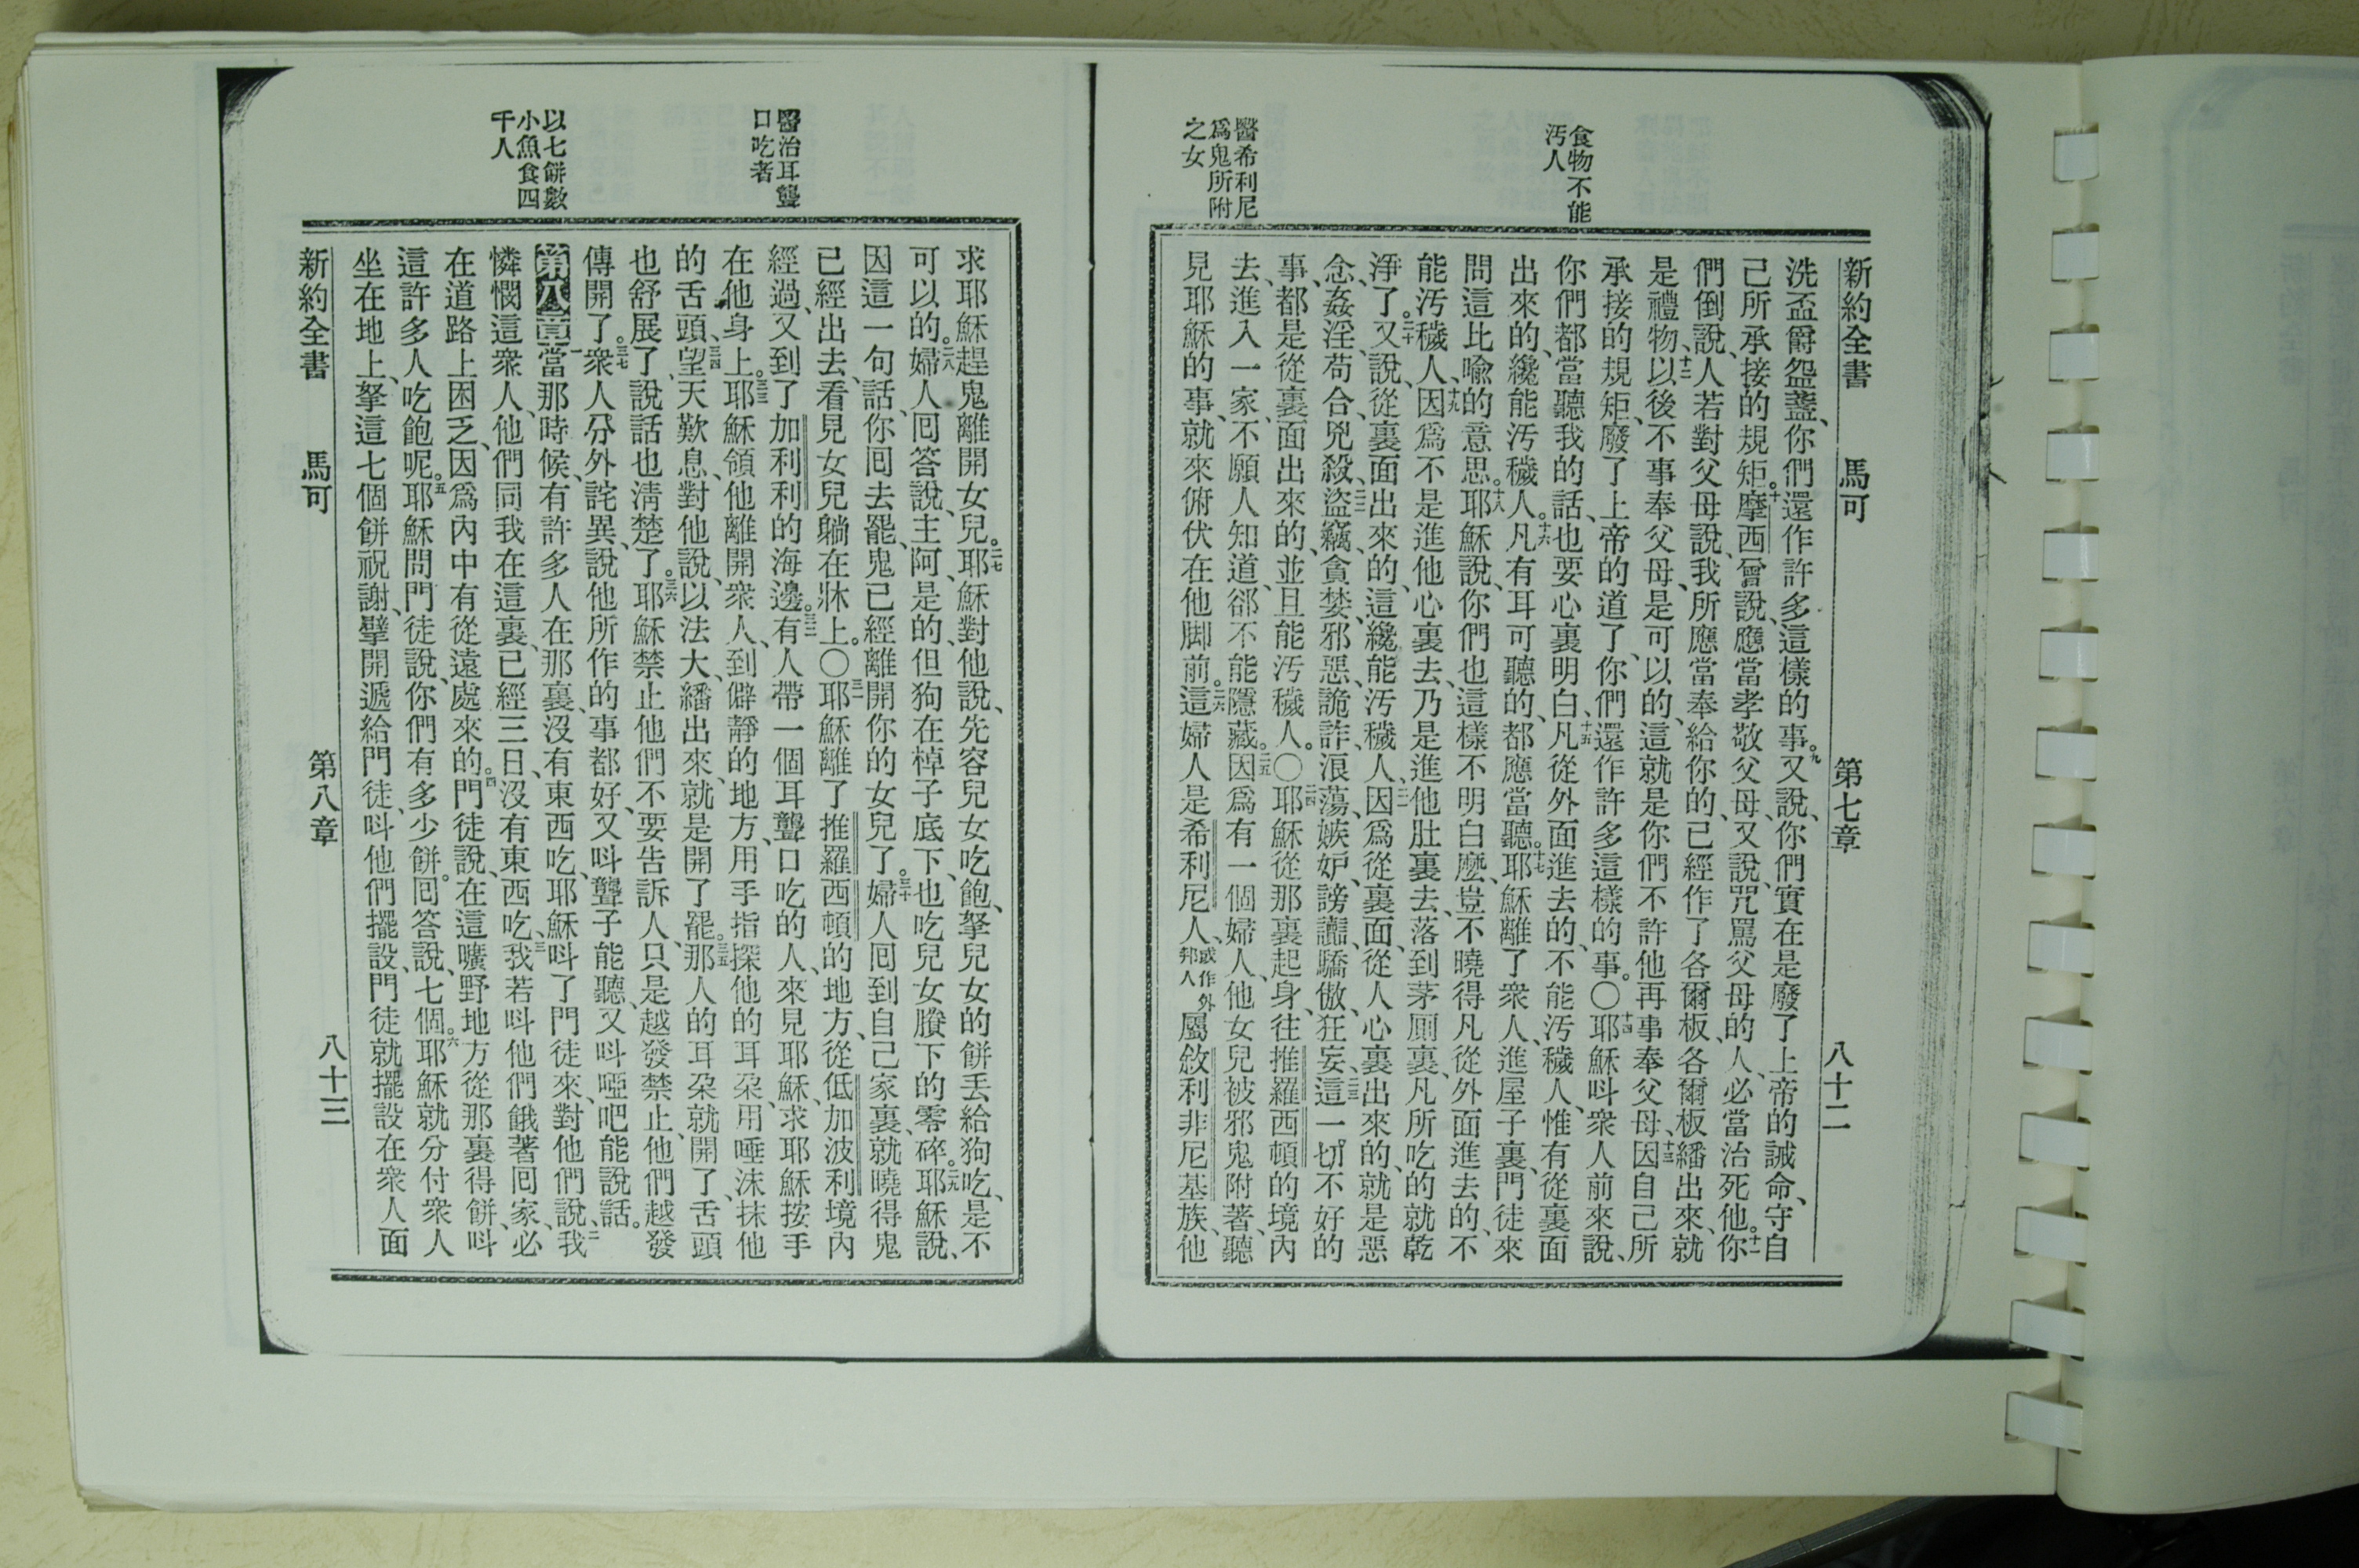 食物不能
汚人
醫希利尼
爲鬼所附
之女
新約全書 馬可 第七章 八十二
洗盃爵盌盞、你們還作許多這樣的事。九又說、你們實在是廢了上帝的誡命、守自
己所承接的規矩。十摩西曾說、應當孝敬父母、又說、咒罵父母的人、必當治死他。十一你
們倒說、人若對父母說、我所應當奉給你的、已經作了各爾板、各爾板繙出來、就
是禮物、十二以後不事奉父母、是可以的、這就是你們不許他再事奉父母、十三因自己所
承接的規矩、廢了上帝的道了、你們還作許多這樣的事。〇十四耶穌呌衆人前來說、
你們都當聽我的話、也要心裏明白、十五凡從外面進去的、不能汚穢人、惟有從裏面
出來的、纔能汚穢人。十六凡有耳可聽的、都應當聽。十七耶穌離了衆人、進屋子裏、門徒來
問這比喻的意思。十八耶穌說、你們也這樣不明白麽、豈不曉得凡從外面進去的、不
能汚穢人、十九因爲不是進他心裏去、乃是進他肚裏去、落到茅厠裏、凡所吃的就乾
淨了。二十又說、從裏面出來的、這纔能汚穢人、二一因爲從裏面、從人心裏出來的、就是惡
念、姦淫、苟合、兇殺、二二盜竊、貪婪、邪惡、詭詐、浪蕩、嫉妒、謗讟、驕傲、狂妄、二三這一切不好的
事、都是從裏面出來的、並且能汚穢人。〇二四耶穌從那裏起身、往推羅西頓的境內
去、進入一家、不願人知道、郤不能隱藏。二五因爲有一個婦人、他女兒被邪鬼附著、聽
見耶穌的事、就來俯伏在他脚前。二六這婦人是希利尼人、或作外邦人屬敘利非尼基族、他
醫治耳聾
口吃者
以七餅數
小魚食四
千人
求耶穌趕鬼離開女兒。二七耶穌對他說、先容兒女吃飽、拏兒女的餅丟給狗吃、是不
可以的。二八婦人囘答說、主阿、是的、但狗在棹子底下、也吃兒女賸下的零碎。二九耶穌說、
因這一句話、你囘去罷、鬼已經離開你的女兒了。三十婦人囘到自己家裏、就曉得鬼
已經出去、看見女兒躺在牀上。〇三一耶穌離了推羅西頓的地方、從低加波利境內
經過、又到了加利利的海邊。三二有人帶一個耳聾口吃的人、來見耶穌、求耶穌按手
在他身上。三三耶穌領他離開衆人、到僻靜的地方、用手指探他的耳朶、用唾沫抹他
的舌頭、三四望天歎息、對他說、以法大、繙出來、就是開了罷。三五那人的耳朶就開了、舌頭
也舒展了、說話也淸楚了。三六耶穌禁止他們不要告訴人、只是越發禁止、他們越發
傳開了。三七衆人分外詫異、說他所作的事都好、又呌聾子能聽、又呌啞吧能說話。
第八章 一當那時候、有許多人在那裏、沒有東西吃、耶穌呌了門徒來、對他們說、二我
憐憫這衆人、他們同我在這裏、已經三日、沒有東西吃、三我若呌他們餓著囘家、必
在道路上困乏、因爲內中有從遠處來的。四門徒說、在這曠野地方、從那裏得餅、呌
這許多人吃飽呢。五耶穌問門徒說、你們有多少餅。囘答說、七個。六耶穌就分付衆人
坐在地上、拏這七個餅祝謝、擘開遞給門徒、呌他們擺設、門徒就擺設在衆人面
新約全書 馬可 第八章 八十三